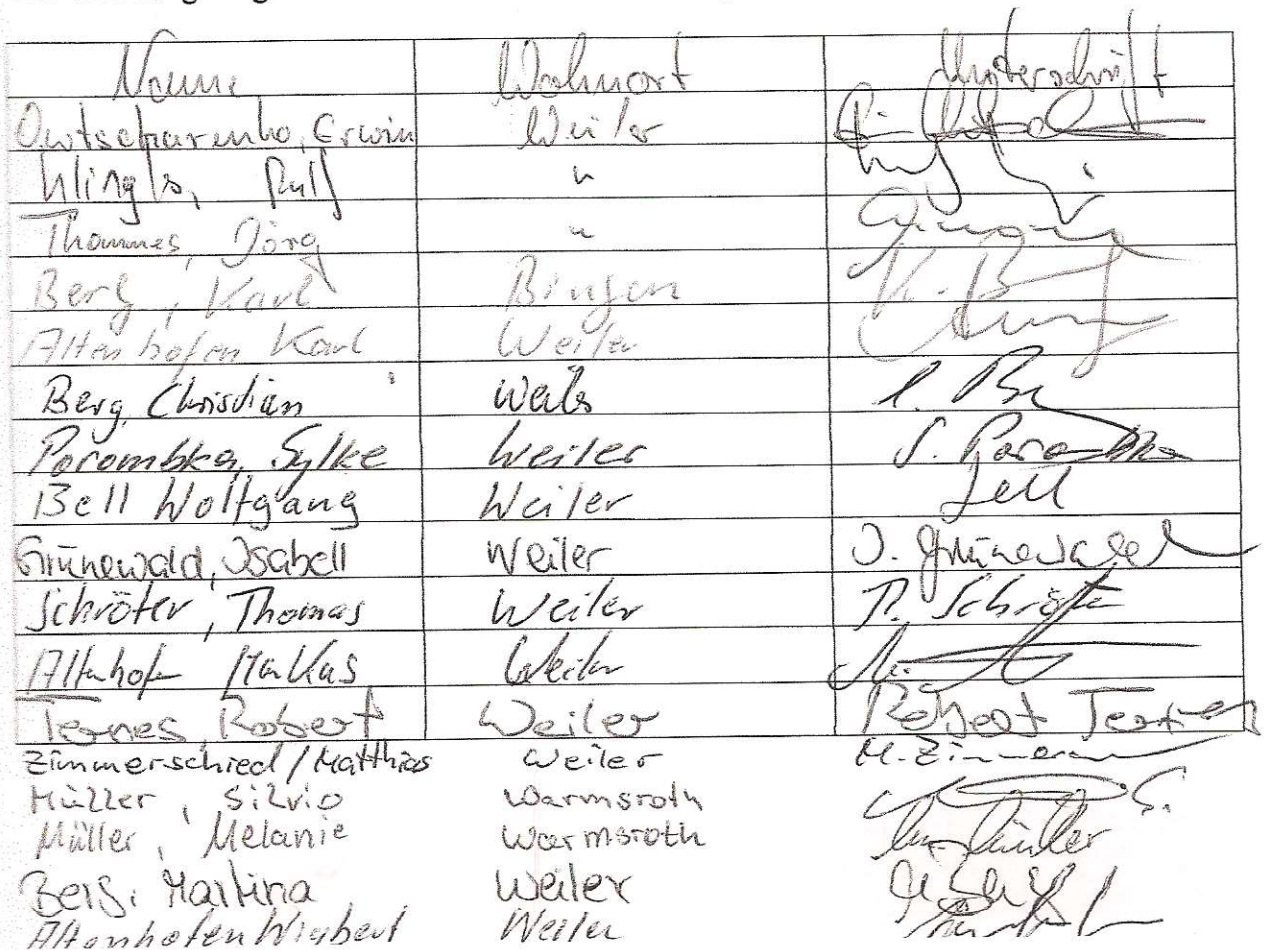 Name Wohnort Unterschrift
Owtscharenko, Erwin Weiler
Ralf "
Thommes, Jörg "
Berg, Karl Bingen K. Berg
Altenhofen Karl Weiler
Berg, Christian Weiler C. Be
Porombka, Sylke Weiler S. Porombka
Bell Wolfgang Weiler Bell
Grünewald, Isabell Weiler I. Grünewald
Schröter, Thomas Weiler T. Schröter
Altenhofen Markus Weiler
Ternes, Robert Weiler Robert Ternes
Zimmerschied / Matthias Weiler M. Zimmer
Müller, Silvio Warmsroth S.
Müller, Melanie Warmsroth Müller
Berg, Martina Weiler
Altenhofen Wigbert Weiler